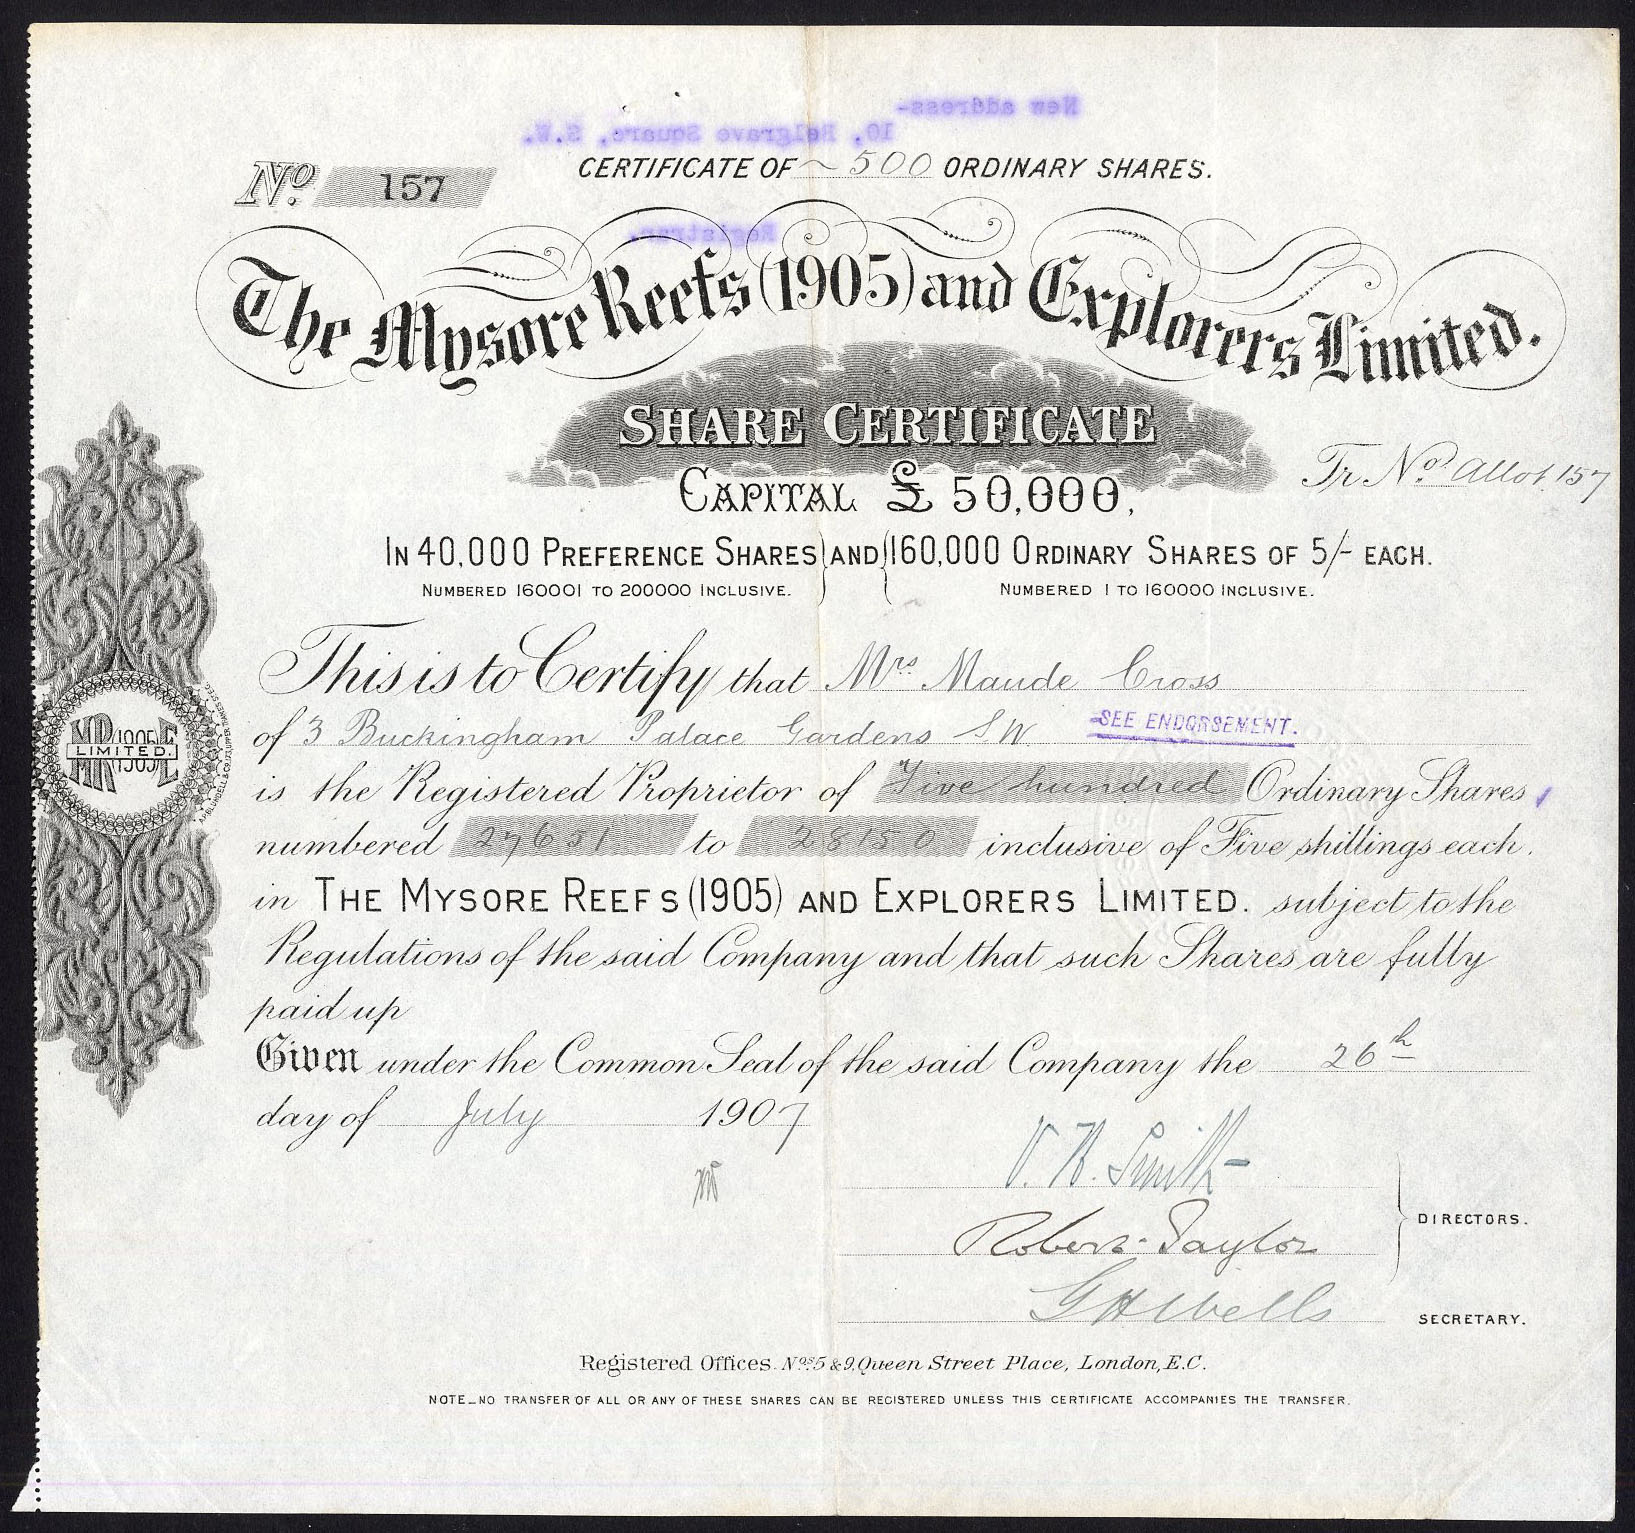 New address-
10, Belgrave Square, S.W.
CERTIFICATE OF ~ 500 ORDINARY SHARES.
No. 157
Registrar.
The Mysore Reefs (1905) and Explorers Limited.
SHARE CERTIFICATE
CAPITAL £ 50,000,
Tr. No. Allot. 157
IN 40,000 PREFERENCE SHARES AND 160,000 ORDINARY SHARES OF 5/- EACH.
NUMBERED 160001 TO 200000 INCLUSIVE. NUMBERED 1 TO 160000 INCLUSIVE.
This is to Certify that Mrs. Maude Cross
of 3 Buckingham Palace Gardens S.W. SEE ENDORSEMENT.
is the Registered Proprietor of Five hundred Ordinary Shares
numbered 27651 to 28150 inclusive of Five shillings each.
in THE MYSORE REEFS (1905) AND EXPLORERS LIMITED. subject to the
Regulations of the said Company and that such Shares are fully
paid up
Given under the Common Seal of the said Company the 26th
day of July 1907
MR 1905 E
LIMITED.
V. H. Smith
Robert Taylor
DIRECTORS.
G H Wells
SECRETARY.
Registered Offices. Nos. 5 & 9. Queen Street Place, London, E.C.
NOTE_NO TRANSFER OF ALL OR ANY OF THESE SHARES CAN BE REGISTERED UNLESS THIS CERTIFICATE ACCOMPANIES THE TRANSFER.